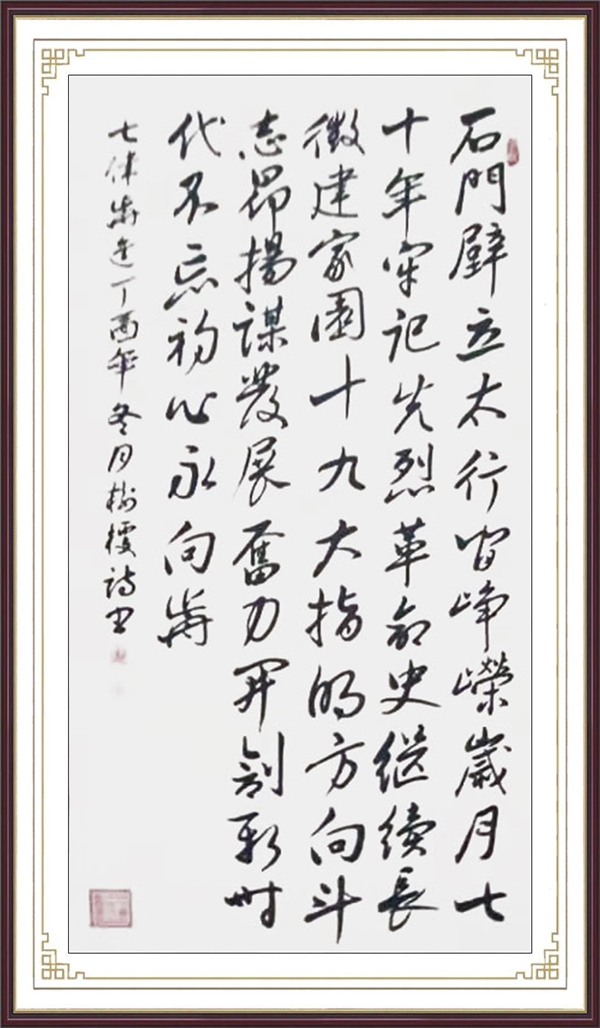 石門壁立太行间峥嶸歲月七
十年牢记先烈革命史继續長
徵建家園十九大指明方向斗
志昂揚謀發展奮力開創新时
代不忘初心永向前
七律前進丁酉年冬月树诗书